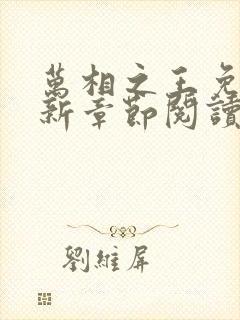 萬相之王免
新章節閱讀
劉維屏